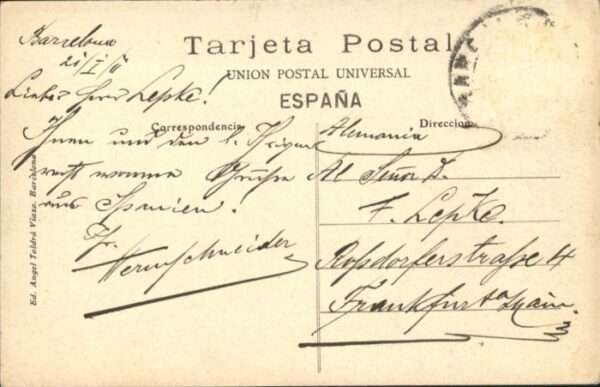 Tarjeta Postal
UNION POSTAL UNIVERSAL
ESPAÑA
Correspondencia
Direccion
Barcelona
21/I/
Lieber Herr Lepke!
Ihnen und den l. Ihrigen
recht warme Grüße
aus Spanien.
Ihr
Alemania
Al Señor D.
F. Lepke.
Roßdorferstraße 4
Frankfurt a Main.
Ed. Angel Toldrá Viazo. Barcelona